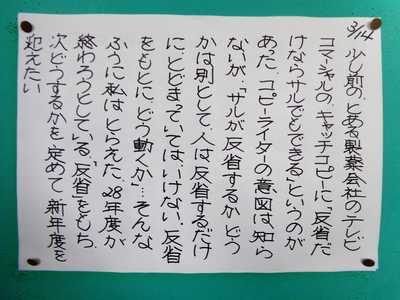 3/14 少し前の、とある製薬会社のテレビ
コマーシャルの、キャッチコピーに、「反省だ
けならサルでもできる」というのが
あった。コピーライターの意図は、知ら
ないが、「サルが反省するかどう
かは別として、人は、反省するだけ
に、とどまっていてはいけない、反省
をもとに、どう動くか」…そんな
ふうに私はとらえた。28年度が
終わろうとしている。「反省」をもち、
次どうするかを定めて新年度を
迎えたい